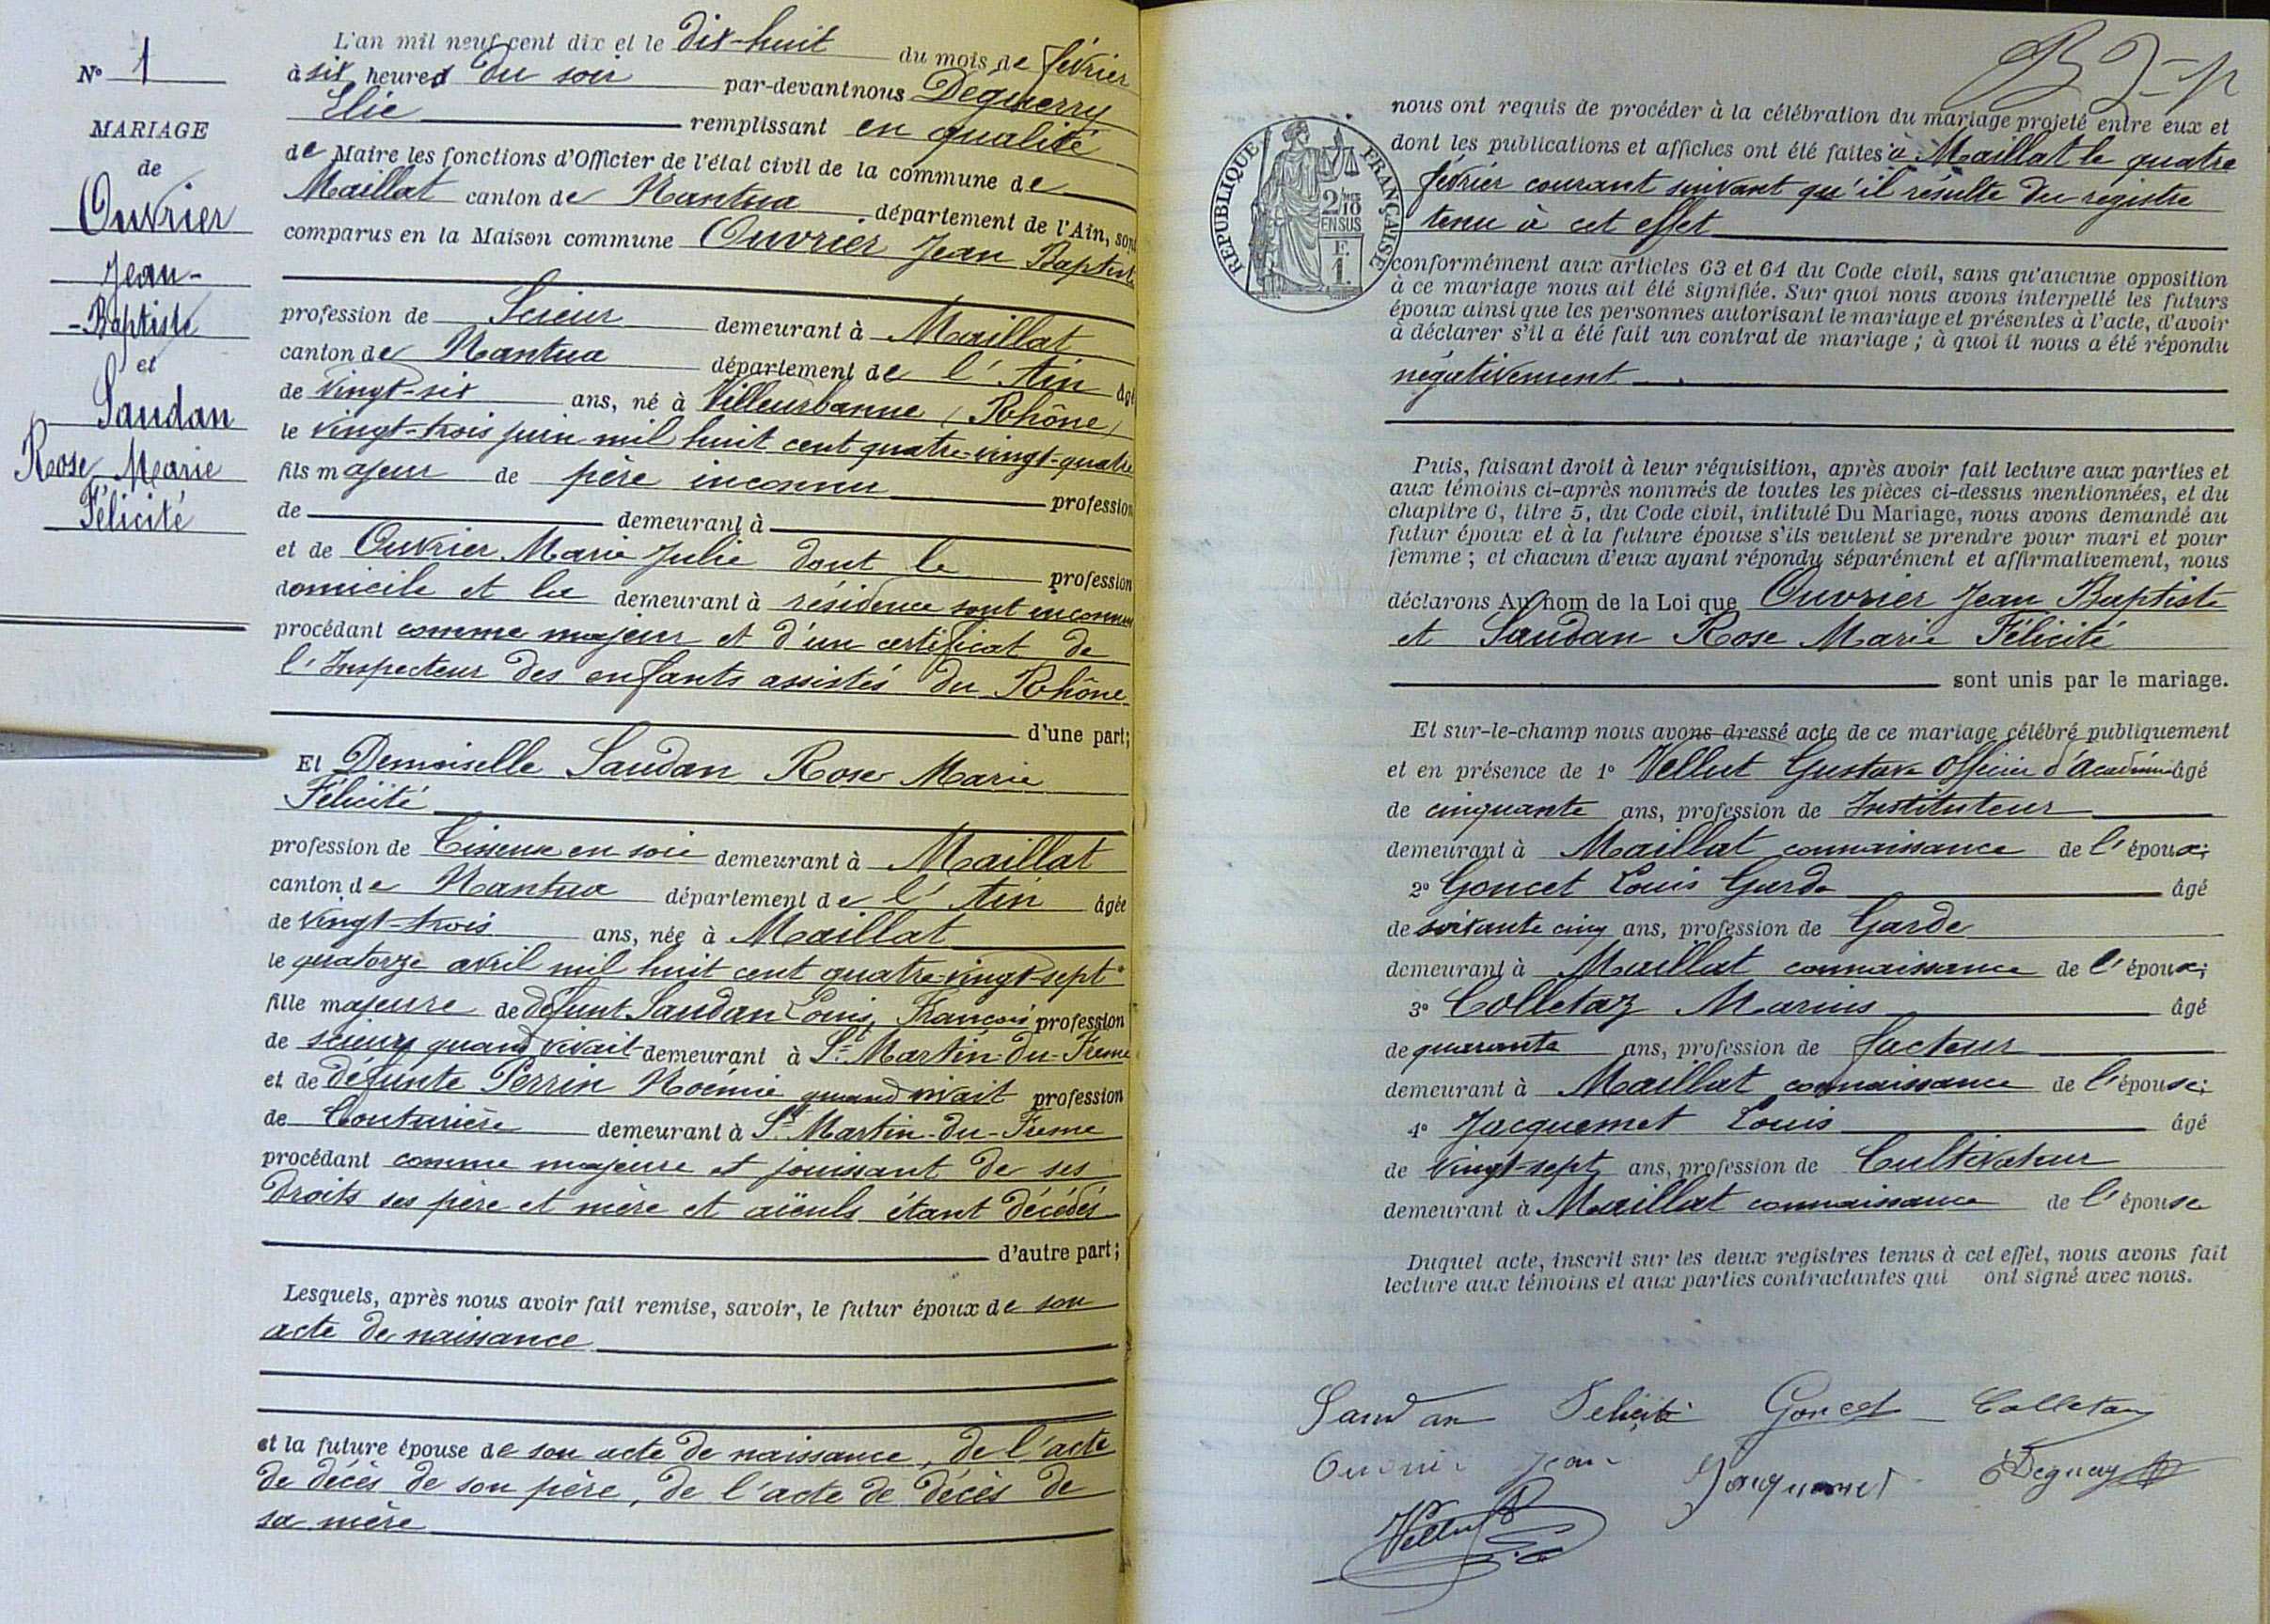 N° 1
MARIAGE
de
Ouvrier
Jean-
-Baptiste
et
Saudan
Rose Marie
Félicité
L'an mil neuf cent dix et le dix-huit du mois de février
à six heures du soir par-devant nous Deguerry
Elie remplissant en qualité
de Maire les fonctions d'Officier de l'état civil de la commune de
Maillat canton de Nantua département de l'Ain, sont
comparus en la Maison commune Ouvrier Jean Baptiste
profession de Scieur demeurant à Maillat
canton de Nantua département de l'Ain âgé
de vingt-six ans, né à Villeurbanne (Rhône)
le vingt-trois juin mil huit cent quatre-vingt-quatre
fils majeur de père inconnu profession
de demeurant à
et de Ouvrier Marie Julie dont le profession
domicile et la demeurant à résidence sont inconnus
procédant comme majeur et d'un certificat de
l'Inspecteur des enfants assistés du Rhône
d'une part;
Et Demoiselle Saudan Rose Marie
Félicité
profession de Tisseuse en soie demeurant à Maillat
canton de Nantua département de l'Ain âgée
de vingt-trois ans, née à Maillat
le quatorze avril mil huit cent quatre-vingt-sept
fille majeure de défunt Saudan Louis François profession
de scieur quand vivait demeurant à St Martin-du-Frêne
et de défunte Perrin Noémie quand vivait profession
de Couturière demeurant à St Martin-du-Frêne
procédant comme majeure et jouissant de ses
droits ses père et mère et aïeuls étant décédés
d'autre part;
Lesquels, après nous avoir fait remise, savoir, le futur époux de son
acte de naissance
et la future épouse de son acte de naissance, de l'acte
de décès de son père, de l'acte de décès de
sa mère
RÉPUBLIQUE FRANÇAISE
2/10
EN SUS
F.
1.
nous ont requis de procéder à la célébration du mariage projeté entre eux et
dont les publications et affiches ont été faites à Maillat le quatre
février courant suivant qu'il résulte du registre
tenu à cet effet
conformément aux articles 63 et 64 du Code civil, sans qu'aucune opposition
à ce mariage nous ait été signifiée. Sur quoi nous avons interpellé les futurs
époux ainsi que les personnes autorisant le mariage et présentes à l'acte, d'avoir
à déclarer s'il a été fait un contrat de mariage; à quoi il nous a été répondu
négativement
Puis, faisant droit à leur réquisition, après avoir fait lecture aux parties et
aux témoins ci-après nommés de toutes les pièces ci-dessus mentionnées, et du
chapitre 6, titre 5, du Code civil, intitulé Du Mariage, nous avons demandé au
futur époux et à la future épouse s'ils veulent se prendre pour mari et pour
femme; et chacun d'eux ayant répondu séparément et affirmativement, nous
déclarons Au nom de la Loi que Ouvrier Jean Baptiste
et Saudan Rose Marie Félicité
sont unis par le mariage.
Et sur-le-champ nous avons dressé acte de ce mariage célébré publiquement
et en présence de 1° Vellut Gustave Officier d'Académie âgé
de cinquante ans, profession de Instituteur
demeurant à Maillat connaissance de l'époux;
2° Goncet Louis Garde âgé
de soixante cinq ans, profession de Garde
demeurant à Maillat connaissance de l'époux;
3° Colletaz Marius âgé
de quarante ans, profession de facteur
demeurant à Maillat connaissance de l'épouse;
4° Jacquemet Louis âgé
de vingt-sept ans, profession de Cultivateur
demeurant à Maillat connaissance de l'épouse
Duquel acte, inscrit sur les deux registres tenus à cet effet, nous avons fait
lecture aux témoins et aux parties contractantes qui ont signé avec nous.
Saudan Félicité Goncet Colletaz
Ouvrier Jean Jacquemet EDeguerry
Vellut